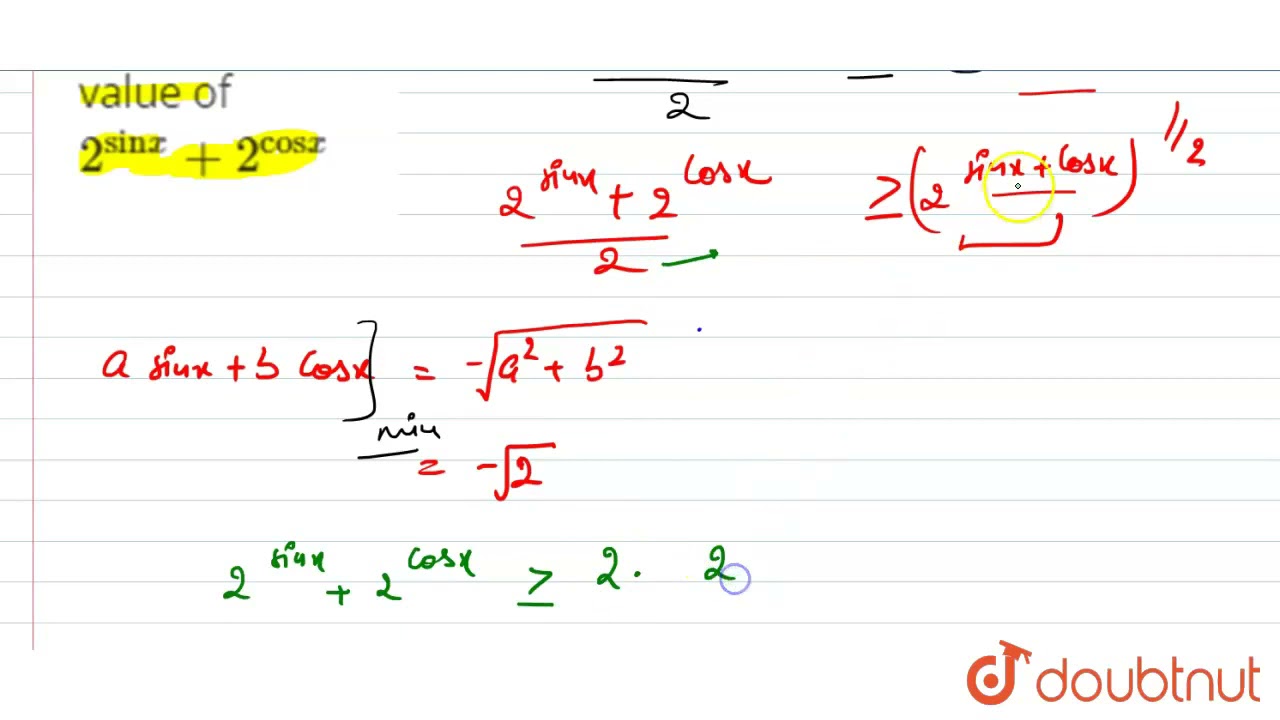 value of
2^{sinx} + 2^{cosx}
2
\frac{2^{sinx} + 2^{cosx}}{2} ≥ (2^{sinx + cosx})^{1/2}
a sinx + b cosx]_{min} = -\sqrt{a^2 + b^2}
= -\sqrt{2}
2^{sinx} + 2^{cosx} ≥ 2 · 2
doubtnut